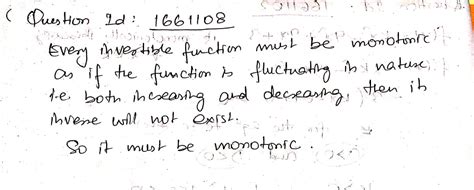 ( Question Id : 1661108
Every invertible function must be monotonic
as if the function is fluctuating in nature,
i.e both increasing and decreasing, then its
inverse will not exist.
So it must be monotonic.